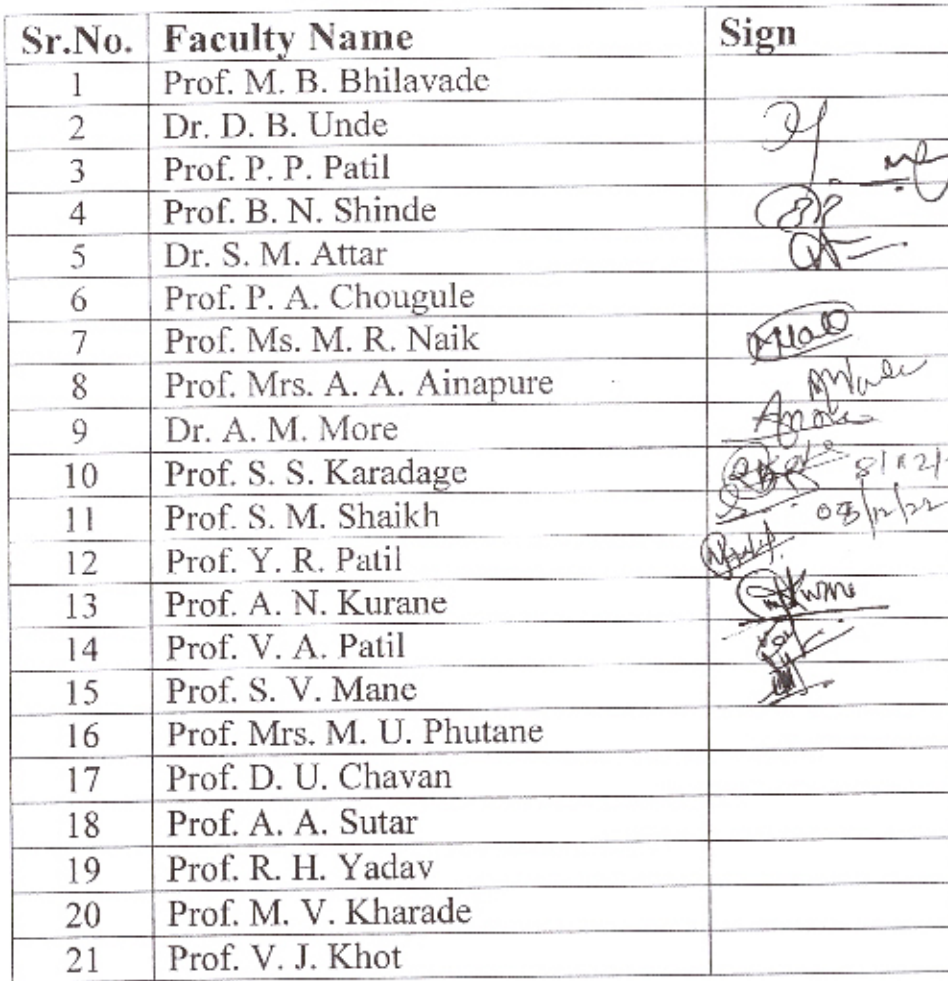 Sr.No. Faculty Name Sign
1 Prof. M. B. Bhilavade
2 Dr. D. B. Unde
3 Prof. P. P. Patil
4 Prof. B. N. Shinde
5 Dr. S. M. Attar
6 Prof. P. A. Chougule
7 Prof. Ms. M. R. Naik
8 Prof. Mrs. A. A. Ainapure
9 Dr. A. M. More
10 Prof. S. S. Karadage
11 Prof. S. M. Shaikh 08/12/22
12 Prof. Y. R. Patil
13 Prof. A. N. Kurane
14 Prof. V. A. Patil
15 Prof. S. V. Mane
16 Prof. Mrs. M. U. Phutane
17 Prof. D. U. Chavan
18 Prof. A. A. Sutar
19 Prof. R. H. Yadav
20 Prof. M. V. Kharade
21 Prof. V. J. Khot